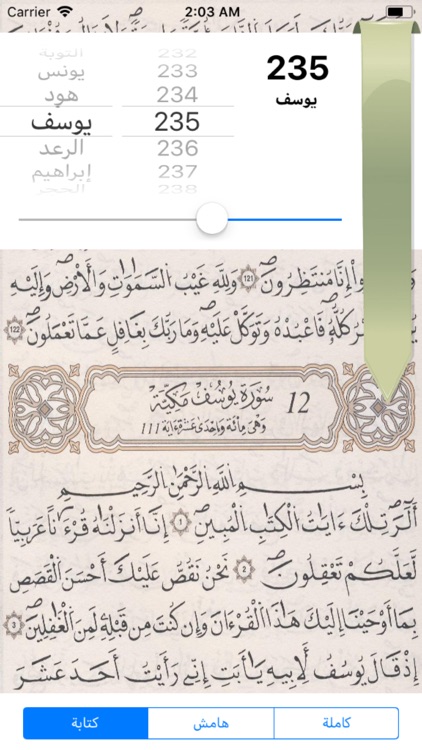 Carrier 2:03 AM
232
التوبة
يونس 233
هود 234
يوسف 235
الرعد 236
إبراهيم 237
الحجر 238
235
يوسف
إِنَّا مُنتَظِرُونَ 121 وَلِلَّهِ غَيْبُ السَّمَٰوَٰتِ وَالْأَرْضِ وَإِلَيْهِ
كُلُّهُ فَاعْبُدْهُ وَتَوَكَّلْ عَلَيْهِ وَمَا رَبُّكَ بِغَٰفِلٍ عَمَّا تَعْمَلُونَ 122
12 سُورَةُ يُوسُفَ مَكِّيَّة
وَهْيَ مِائَة وَاحْدَىٰ عَشْرَةَ ءَايَة 111
بِسْمِ اللَّهِ الرَّحْمَٰنِ الرَّحِيمِ
أَلَٓرٰ تِلْكَ ءَايَٰتُ الْكِتَٰبِ الْمُبِينِ 1 إِنَّا أَنزَلْنَٰهُ قُرْءَٰنًا عَرَبِيًّا
لَّعَلَّكُمْ تَعْقِلُونَ 2 نَحْنُ نَقُصُّ عَلَيْكَ أَحْسَنَ الْقَصَصِ
بِمَا أَوْحَيْنَا إِلَيْكَ هَٰذَا الْقُرْءَانَ وَإِن كُنتَ مِن قَبْلِهِ لَمِنَ الْغَٰفِلِينَ 3
إِذْ قَالَ يُوسُفُ لِأَبِيهِ يَٰأَبَتِ إِنِّي رَأَيْتُ أَحَدَ عَشَرَ
كتابة هامش كاملة